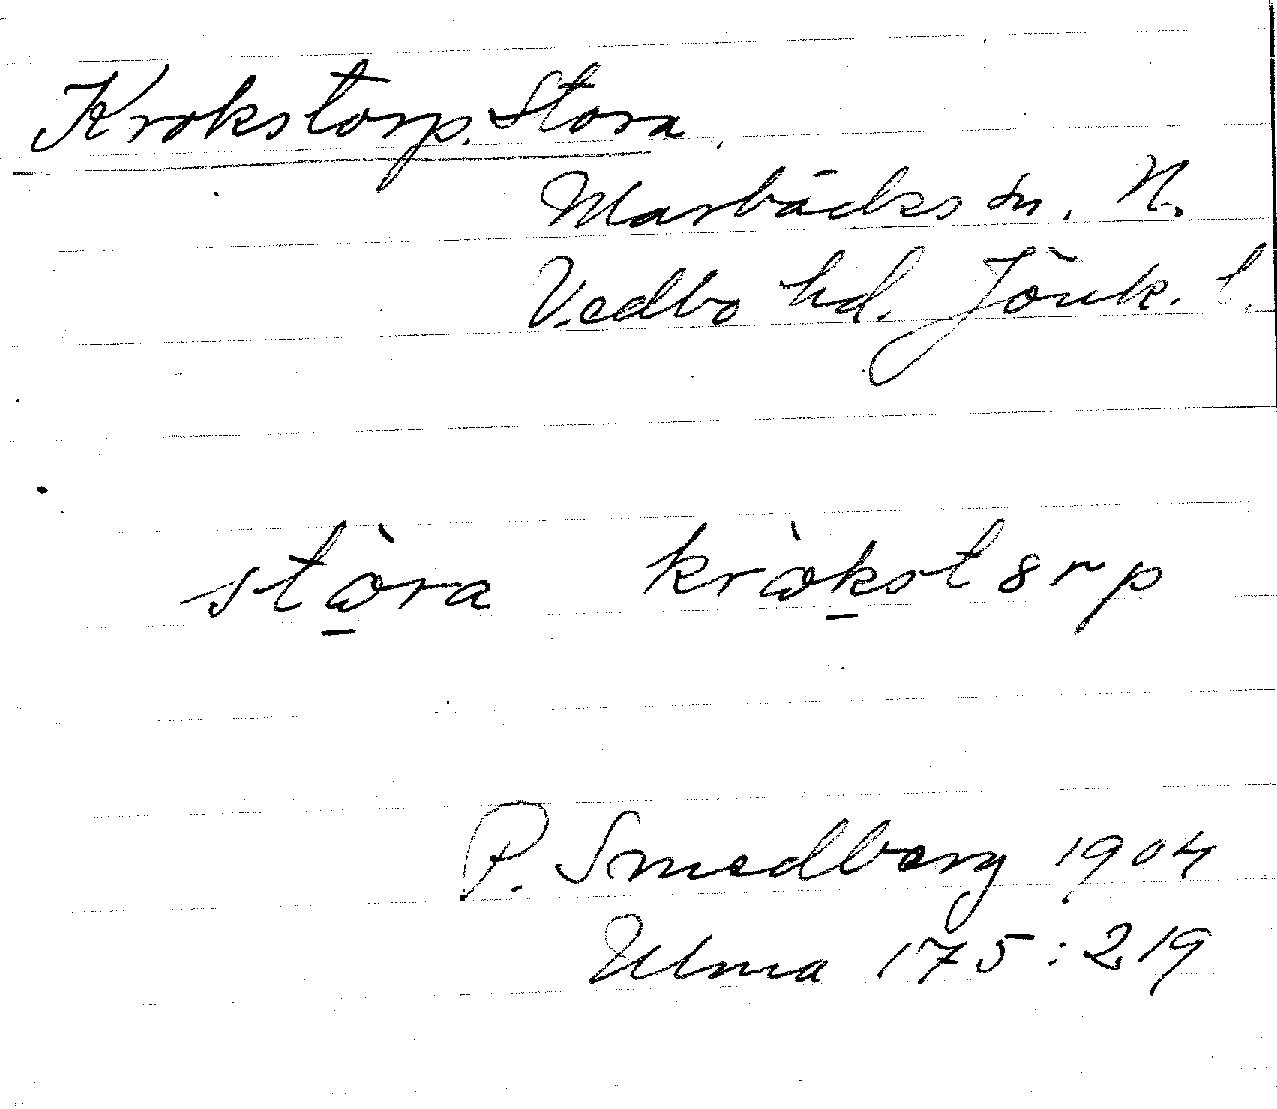 Krokstorp. Stora,
Marbäcks sn. N.
Vedbo hd. Jönk. l.
stὼra krὼkst8rp
P. Smedberg 1904
Ulma 175:219